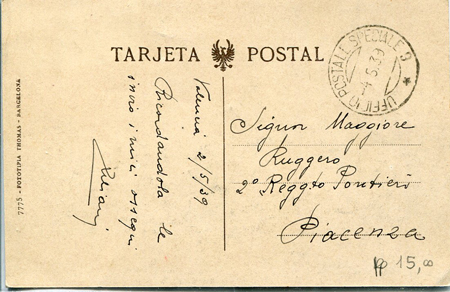 TARJETA POSTAL
UFFICIO POSTALE SPECIALE 9
4.5.39
7775 - FOTOTIPIA THOMAS - BARCELONA
Valencia 2/5/39
Ricordandola le
invio i miei ossequi
Signor Maggiore
Ruggero
2º Reggto Pontieri
Piacenza
15,00